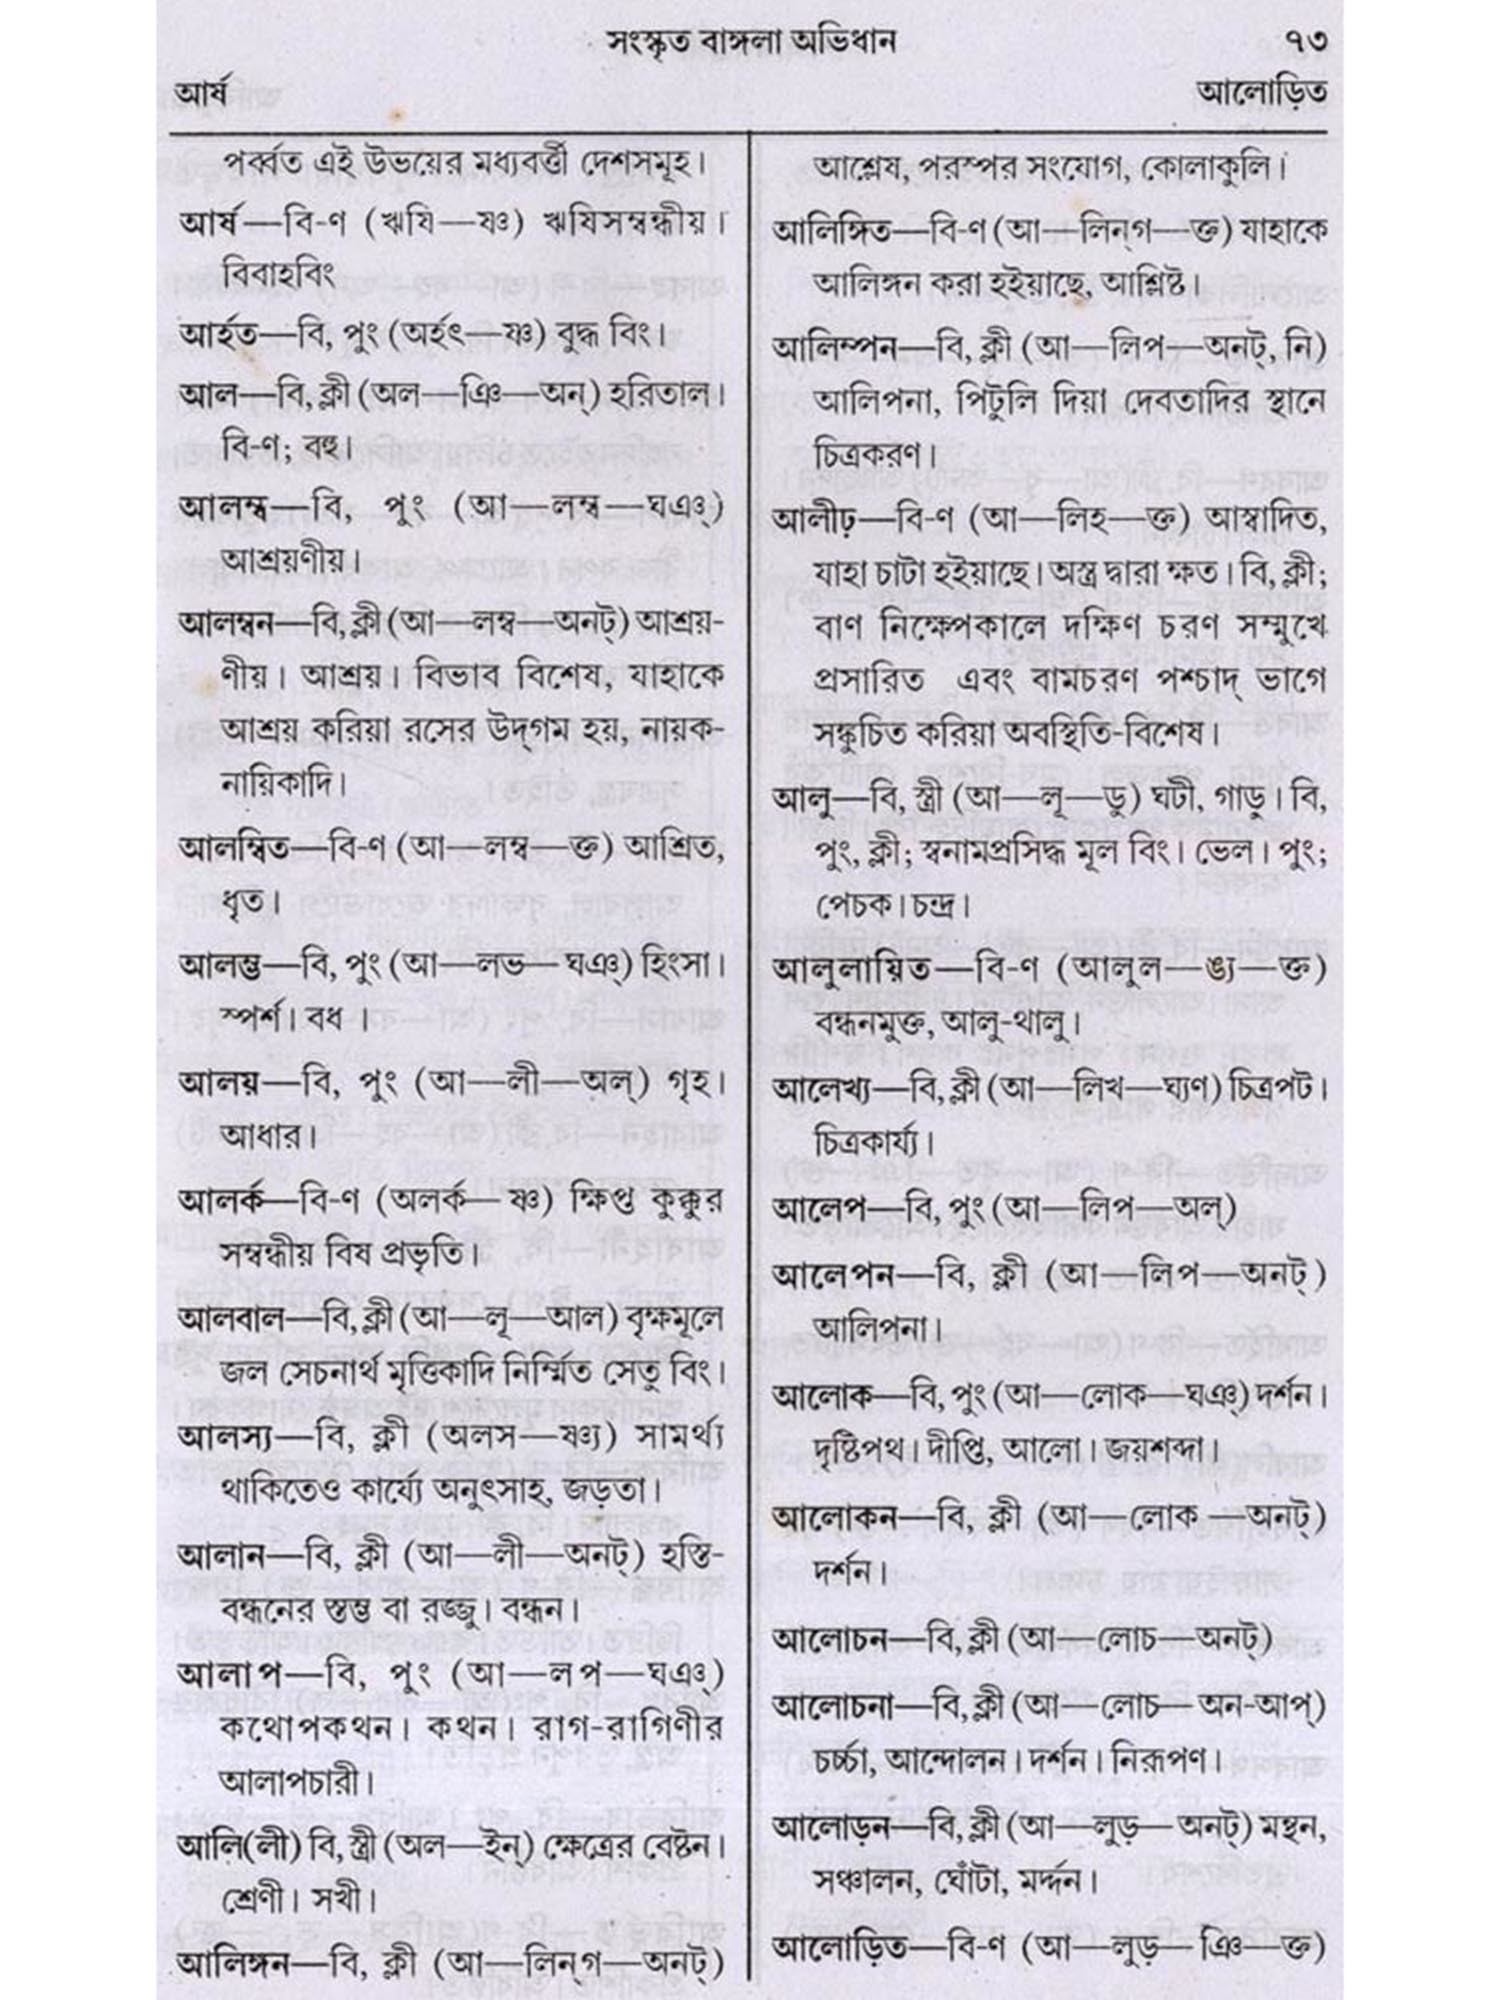 সংস্কৃত বাঙ্গলা অভিধান
৭৩
আর্ষ
আলোড়িত
পর্ব্বত এই উভয়ের মধ্যবর্ত্তী দেশসমূহ।
আর্ষ—বি-ণ (ঋষি—ষ্ণ) ঋষিসম্বন্ধীয়।
বিবাহবিং
আর্হত—বি, পুং (অর্হৎ—ষ্ণ) বুদ্ধ বিং।
আল—বি, ক্লী (অল—ঞি—অন্) হরিতাল।
বি-ণ; বহু।
আলম্ব—বি, পুং (আ—লম্ব—ঘঞ্)
আশ্রয়ণীয়।
আলম্বন—বি, ক্লী (আ—লম্ব—অনট্) আশ্রয়-
ণীয়। আশ্রয়। বিভাব বিশেষ, যাহাকে
আশ্রয় করিয়া রসের উদ্গম হয়, নায়ক-
নায়িকাদি।
আলম্বিত—বি-ণ (আ—লম্ব—ক্ত) আশ্রিত,
ধৃত।
আলম্ভ—বি, পুং (আ—লভ—ঘঞ্) হিংসা।
স্পর্শ। বধ ।
আলয়—বি, পুং (আ—লী—অল্) গৃহ।
আধার।
আলর্ক—বি-ণ (অলর্ক—ষ্ণ) ক্ষিপ্ত কুক্কুর
সম্বন্ধীয় বিষ প্রভৃতি।
আলবাল—বি, ক্লী (আ—লূ—আল) বৃক্ষমূলে
জল সেচনার্থ মৃত্তিকাদি নির্ম্মিত সেতু বিং।
আলস্য—বি, ক্লী (অলস—ষ্ণ্য) সামর্থ্য
থাকিতেও কার্য্যে অনুৎসাহ, জড়তা।
আলান—বি, ক্লী (আ—লী—অনট্) হস্তি-
বন্ধনের স্তম্ভ বা রজ্জু। বন্ধন।
আলাপ—বি, পুং (আ—লপ—ঘঞ্)
কথোপকথন। কথন। রাগ-রাগিণীর
আলাপচারী।
আলি(লী) বি, স্ত্রী (অল—ইন্) ক্ষেত্রের বেষ্টন।
শ্রেণী। সখী।
আলিঙ্গন—বি, ক্লী (আ—লিন্গ—অনট্)
আশ্লেষ, পরস্পর সংযোগ, কোলাকুলি।
আলিঙ্গিত—বি-ণ (আ—লিন্গ—ক্ত) যাহাকে
আলিঙ্গন করা হইয়াছে, আশ্লিষ্ট।
আলিম্পন—বি, ক্লী (আ—লিপ—অনট্, নি)
আলিপনা, পিটুলি দিয়া দেবতাদির স্থানে
চিত্রকরণ।
আলীঢ়—বি-ণ (আ—লিহ—ক্ত) আস্বাদিত,
যাহা চাটা হইয়াছে। অস্ত্র দ্বারা ক্ষত। বি, ক্লী;
বাণ নিক্ষেপকালে দক্ষিণ চরণ সম্মুখে
প্রসারিত এবং বামচরণ পশ্চাদ্ ভাগে
সঙ্কুচিত করিয়া অবস্থিতি-বিশেষ।
আলু—বি, স্ত্রী (আ—লূ—ডু) ঘটী, গাড়ু। বি,
পুং, ক্লী; স্বনামপ্রসিদ্ধ মূল বিং। ভেল। পুং;
পেচক। চন্দ্র।
আলুলায়িত—বি-ণ (আলুল—ঙ্য—ক্ত)
বন্ধনমুক্ত, আলু-থালু।
আলেখ্য—বি, ক্লী (আ—লিখ—ঘ্যণ) চিত্রপট।
চিত্রকার্য্য।
আলেপ—বি, পুং (আ—লিপ—অল্)
আলেপন—বি, ক্লী (আ—লিপ—অনট্)
আলিপনা।
আলোক—বি, পুং (আ—লোক—ঘঞ্) দর্শন।
দৃষ্টিপথ। দীপ্তি, আলো। জয়শব্দা।
আলোকন—বি, ক্লী (আ—লোক—অনট্)
দর্শন।
আলোচন—বি, ক্লী (আ—লোচ—অনট্)
আলোচনা—বি, ক্লী (আ—লোচ—অন-আপ্)
চর্চ্চা, আন্দোলন। দর্শন। নিরূপণ।
আলোড়ন—বি, ক্লী (আ—লুড়—অনট্) মন্থন,
সঞ্চালন, ঘোঁটা, মর্দ্দন।
আলোড়িত—বি-ণ (আ—লুড়—ঞি—ক্ত)